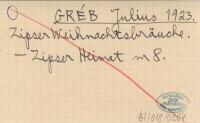 GRÉB Julius 1923.
Zipser Weihnachtsbräuche.
— Zipser Heimat nr 8.